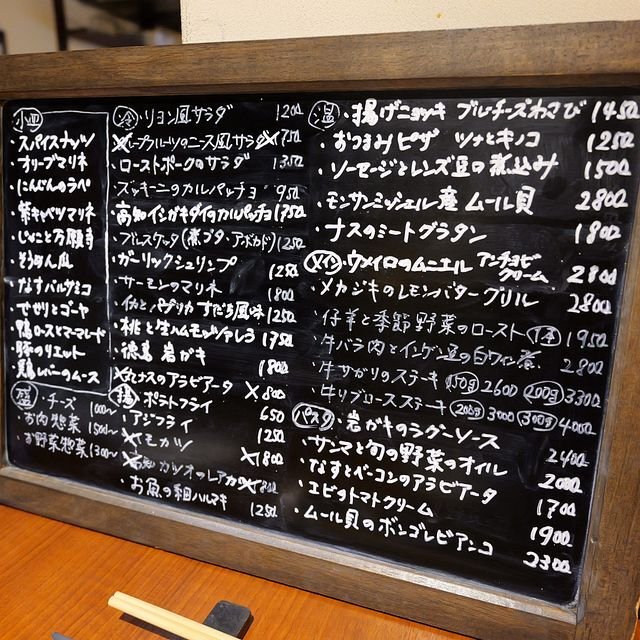 小皿
・スパイスナッツ
・オリーブマリネ
・にんじんのラペ
・紫キャベツマリネ
・じゃこと万願寺
・そうめん瓜
・なすバルサミコ
・でせりとゴーヤ
・鴨ロースとマーマレード
・豚のリエット
・鶏レバーのムース
盛 ・チーズ 1000〜
・お肉惣菜 1500〜
・お野菜惣菜 1300〜
冷 ・リヨン風サラダ 1200
グレープフルーツのニース風サラダ 1750
・ローストポークのサラダ 1350
・ズッキーニのカルパッチョ 950
・高知イシガキダイのカルパッチョ 1750
・ブルスケッタ(煮ブタ・アボカド) 1250
・ガーリックシュリンプ 1250
・サーモンのマリネ 1800
・イカとパプリカ すだち風味 1250
・桃と生ハムモッツァレラ 1750
・徳島 岩がき 1800
ナスのアラビアータ 800
揚 ・ポテトフライ 650
・アジフライ 1250
モカツ 1800
高知 カツオのレアカツ 1800
・お魚の春巻 ハルマキ 1250
温 ・揚げニョッキ ブルーチーズわさび 1450
・おつまみピザ ツナとキノコ 1250
・ソーセージとレンズ豆の煮込み 1500
・モンサンミッシェル産 ムール貝 2800
・ナスのミートグラタン 1800
メイン ・ウメイロのムニエル アンチョビクリーム 2800
・メカジキのレモンバターグリル 2800
・仔羊と季節野菜のロースト 1本 1950
・牛バラ肉とインゲン豆の白ワイン煮 2800
・牛サガリのステーキ 150g 2600 200g 3300
・牛リブロースステーキ 200g 3000 300g 4000
パスタ ・岩がきのラグーソース 2400
・サンマと旬の野菜のオイル 2000
・なすとベーコンのアラビアータ 1700
・エビのトマトクリーム 1900
・ムール貝のボンゴレビアンコ 2300